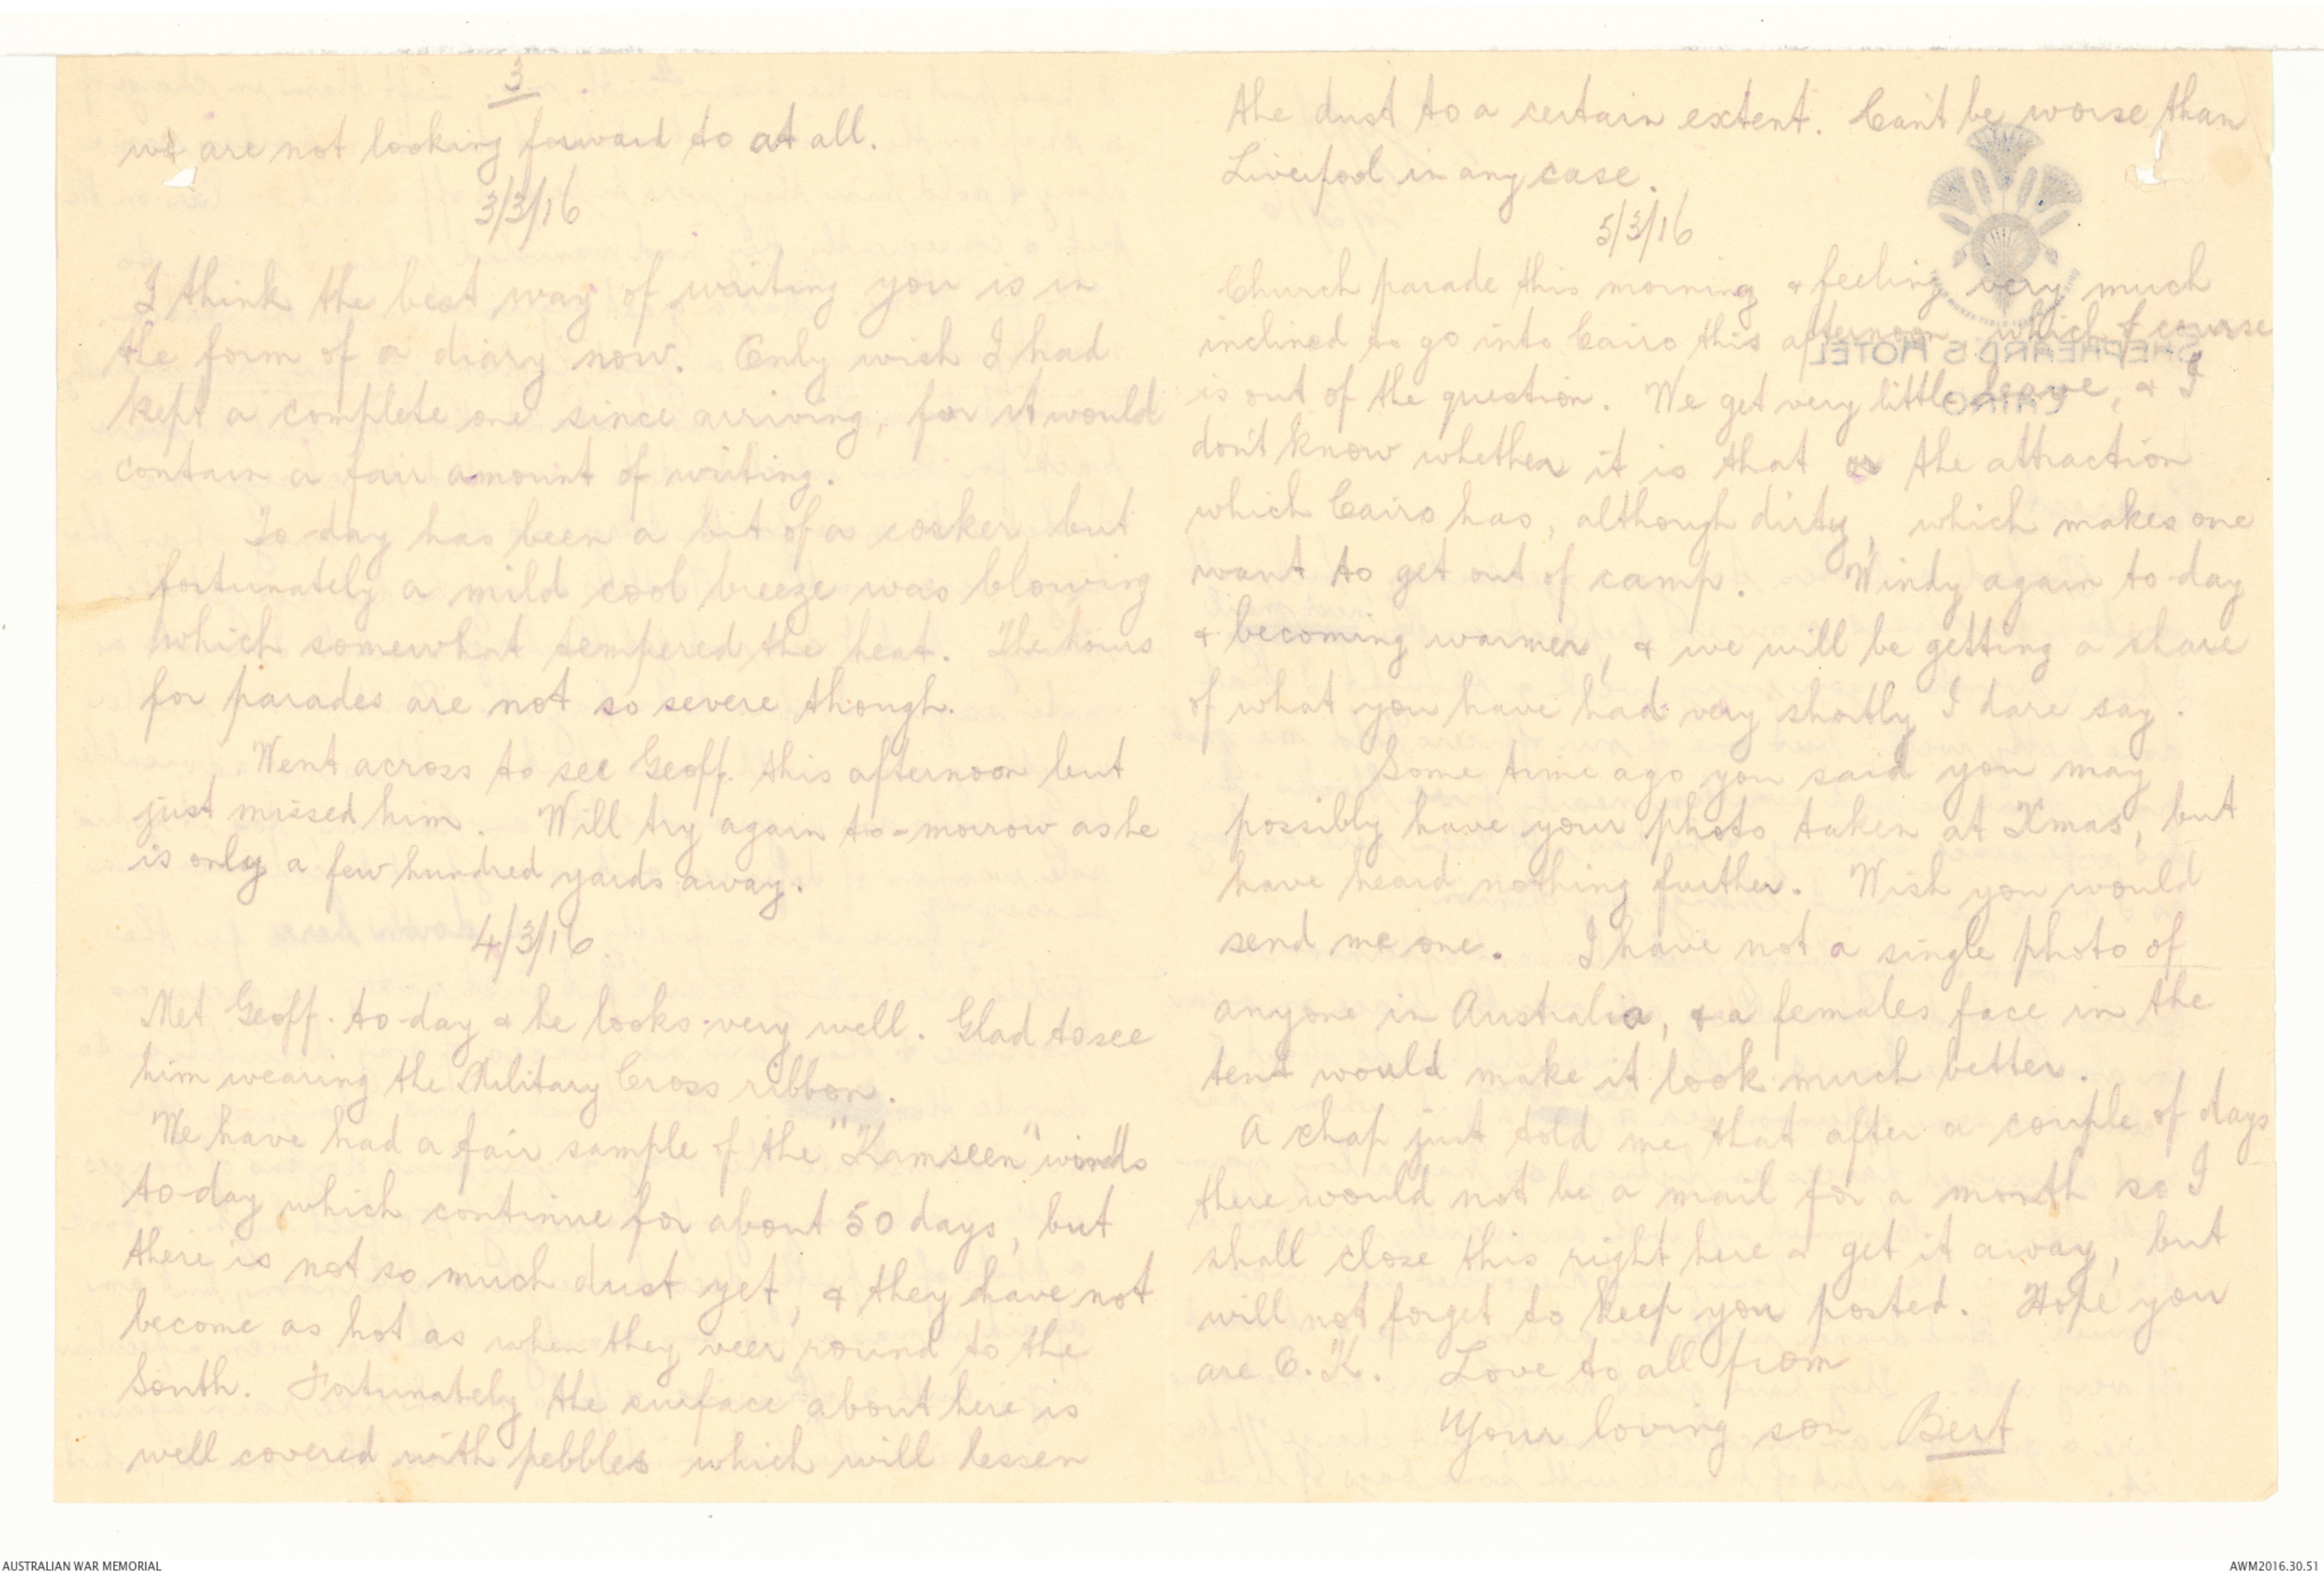 3
we are not looking forward to at all.
3/3/16
I think the best way of writing you is in
the form of a diary now. Only wish I had
kept a complete one since arriving, for it would
contain a fair amount of writing.
To-day has been a bit of a corker but
fortunately a mild cool breeze was blowing
which somewhat tempered the heat. The hours
for parades are not so severe though.
Went across to see Geoff. this afternoon but
just missed him. Will try again to-morrow as he
is only a few hundred yards away.
4/3/16.
Met Geoff. to-day & he looks very well. Glad to see
him wearing the Military Cross ribbon.
We have had a fair sample of the "Kamseen" winds
to-day which continue for about 50 days, but
there is not so much dust yet, & they have not
become as hot as when they veer round to the
South. Fortunately the surface about here is
well covered with pebbles which will lessen
the dust to a certain extent. Can't be worse than
Liverpool in any case.
5/3/16
Church parade this morning & feeling very much
inclined to go into Cairo this afternoon, which of course
is out of the question. We get very little leave, & I
don't know whether it is that or the attraction
which Cairo has, although dirty, which makes one
want to get out of camp. Windy again to-day
& becoming warmer, & we will be getting a share
of what you have had very shortly I dare say.
Some time ago you said you may
possibly have your photo taken at Xmas, but
have heard nothing further. Wish you would
send me one. I have not a single photo of
anyone in Australia, & a females face in the
tent would make it look much better.
A chap just told me that after a couple of days
there would not be a mail for a month so I
shall close this right here & get it away, but
will not forget to keep you posted. Hope you
are O.K. Love to all from
Your loving son Bert
SHEPHEARD'S HOTEL
CAIRO
AUSTRALIAN WAR MEMORIAL
AWM2016.30.51